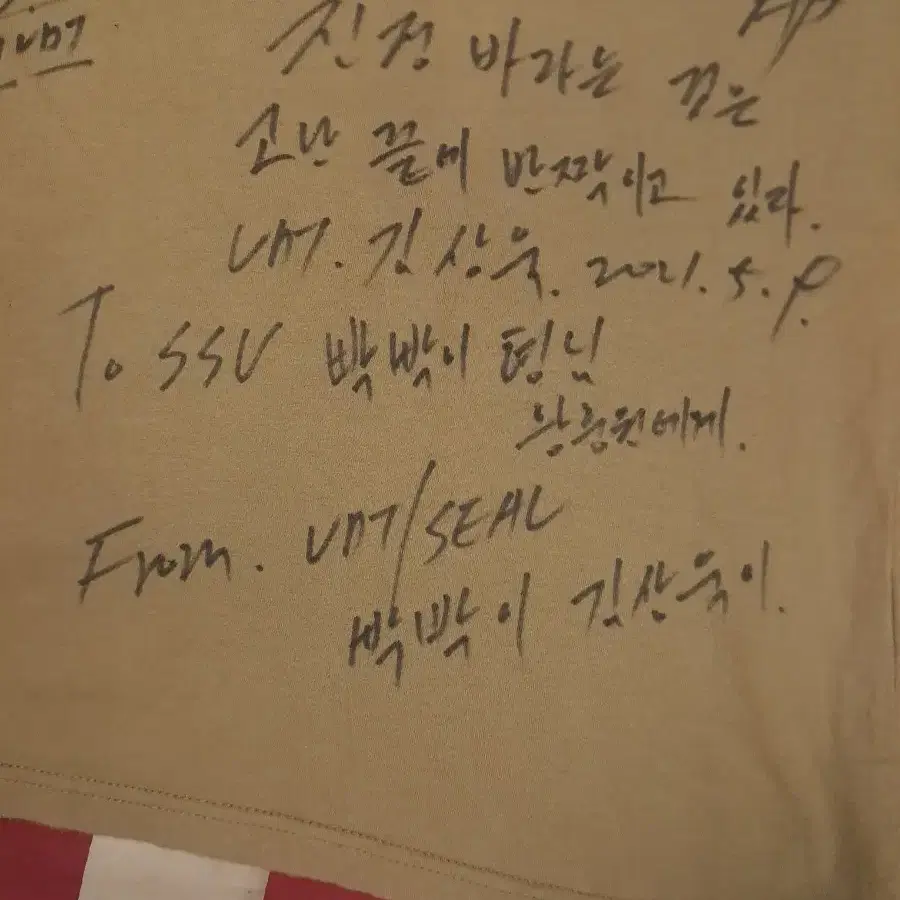 진정 바라는 것은
고난 끝에 반짝이고 있다.
UDT. 김상욱. 2021. 5. 9.
To SSU 빡빡이 형님
황충원에게.
From. UDT/SEAL
빡빡이 김상욱이.